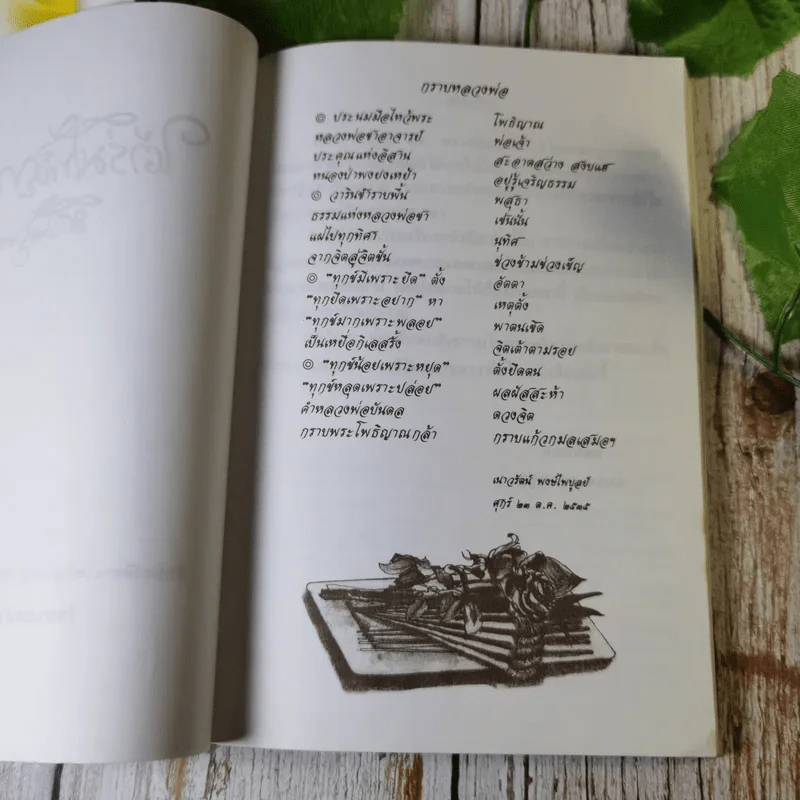 กราบหลวงพ่อ
๏ ประนมมือไหว้พระ โพธิญาณ
หลวงพ่อชาอาจารย์ พ่อเจ้า
ประคุณแห่งอีสาน สะอาดสว่าง สงบแฮ
หนองป่าพงยงเหย้า อยู่รู้เจริญธรรม
๏ วารินชำราบพื้น พสุธา
ธรรมแห่งหลวงพ่อชา เช่นนั้น
แผ่ไปทุกทิศา นุทิศ
จากจิตสู่จิตชั้น ช่วงข้ามช่วงเข็ญ
๏ "ทุกข์มีเพราะยึด" ตั้ง อัตตา
"ทุกข์ยืดเพราะอยาก" หา เหตุตั้ง
"ทุกข์มากเพราะพลอย" พาตนเชิด
เป็นเหยื่อกิเลสรั้ง จิตเต้าตามรอย
๏ "ทุกข์น้อยเพราะหยุด" ตั้งยึดตน
"ทุกข์หลุดเพราะปล่อย" ผลผัสสะห้า
คำหลวงพ่อบันดล ดวงจิต
กราบพระโพธิญาณกล้า กราบแก้วกมลเสมอฯ
เนาวรัตน์ พงษ์ไพบูลย์
ศุกร์ ๒๓ ต.ค. ๒๕๓๕